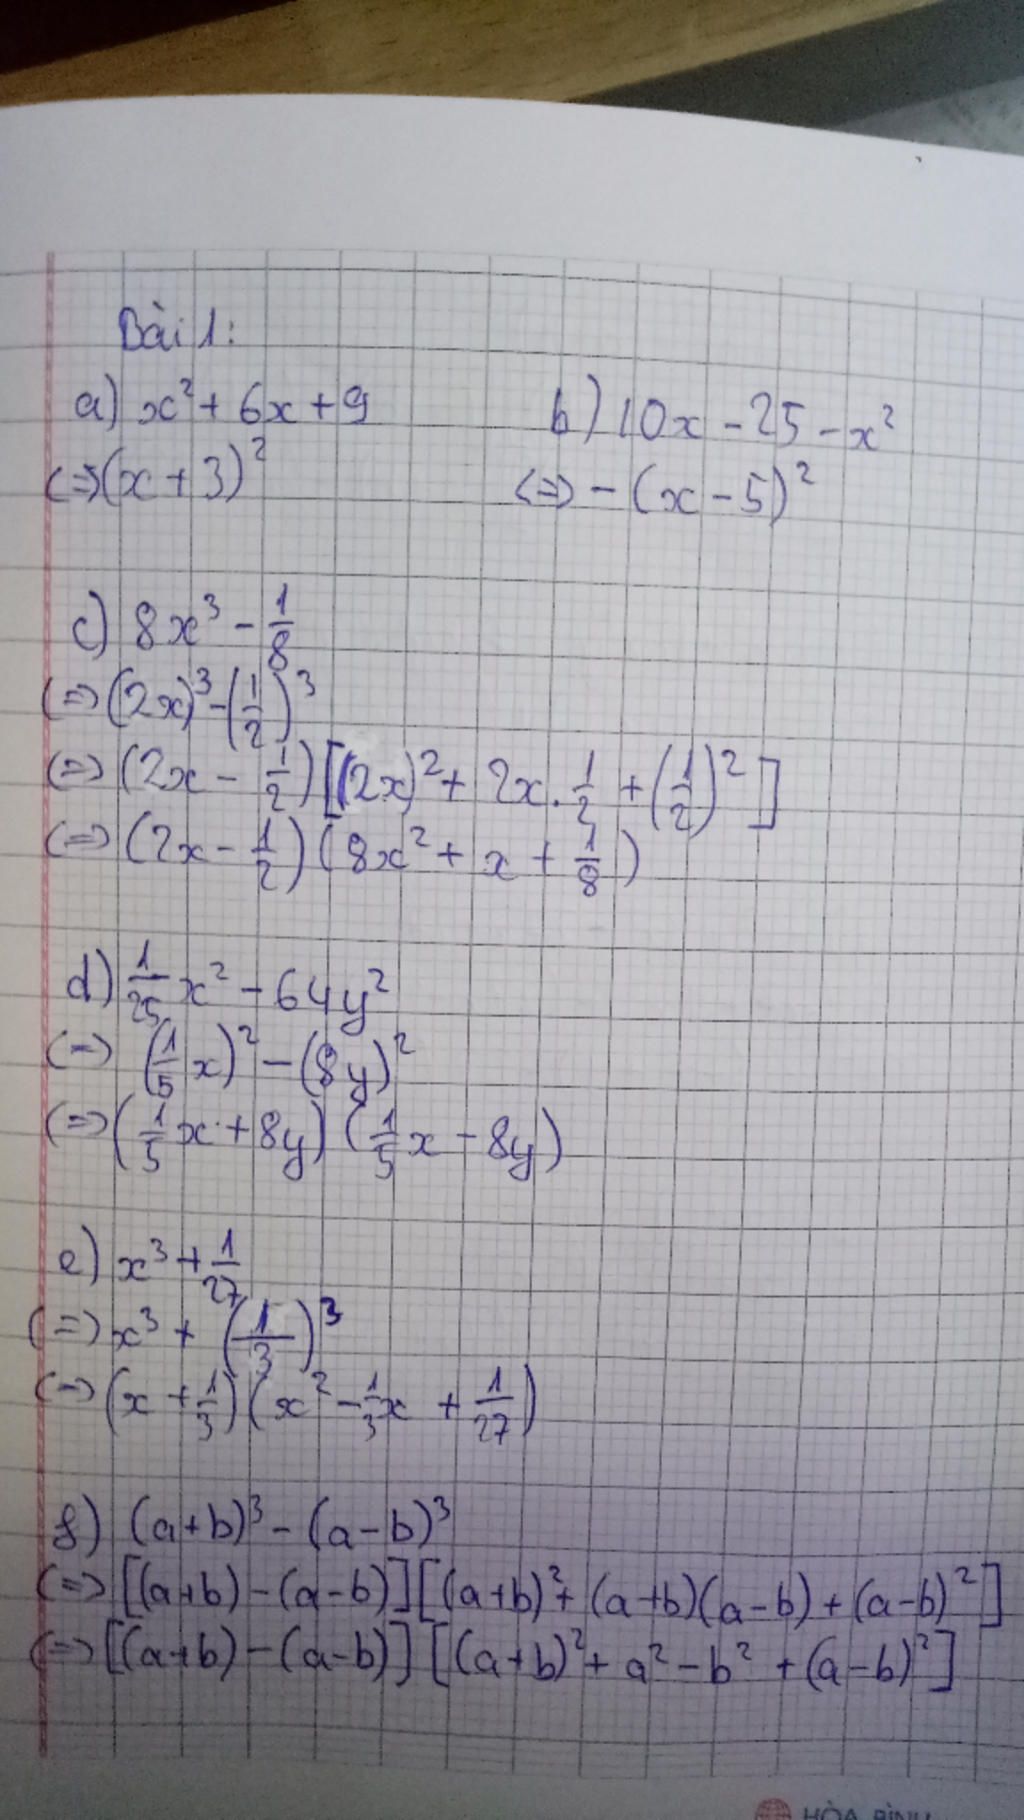 Bài 1:
a) x² + 6x + 9
(=) (x + 3)²
b) 10x - 25 - x²
(=) - (x - 5)²
c) 8x³ - 1/8
(=) (2x)³ - (1/2)³
(=) (2x - 1/2) [(2x)² + 2x . 1/2 + (1/2)²]
(=) (2x - 1/2) (8x² + x + 1/8)
d) 1/25 x² - 64y²
(=) (1/5 x)² - (8y)²
(=) (1/5 x + 8y) (1/5 x - 8y)
e) x³ + 1/27
(=) x³ + (1/3)³
(=) (x + 1/3) (x² - 1/3 x + 1/27)
f) (a + b)³ - (a - b)³
(=) [(a+b) - (a-b)] [(a+b)² + (a+b)(a-b) + (a-b)²]
(=) [(a+b) - (a-b)] [(a+b)² + a² - b² + (a-b)²]
HÒA BÌNH